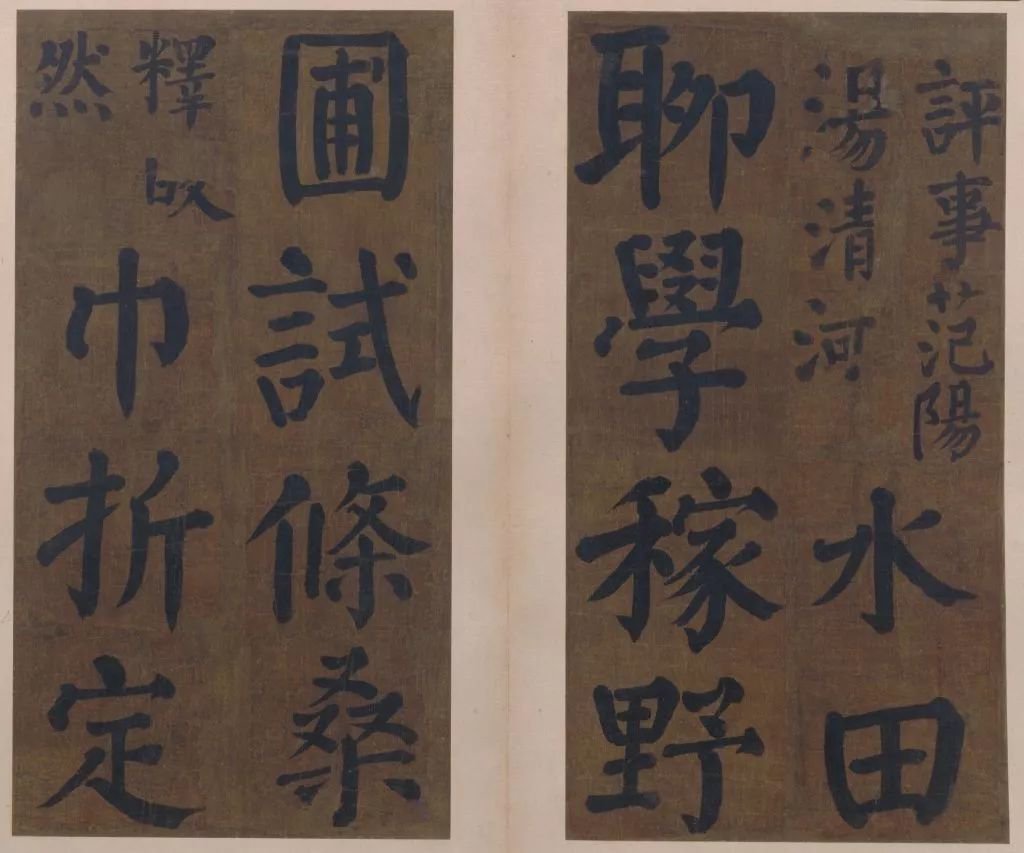 評事范陽
湯清河
水田
聊學稼野
圃試條桑
釋
然
巾折定